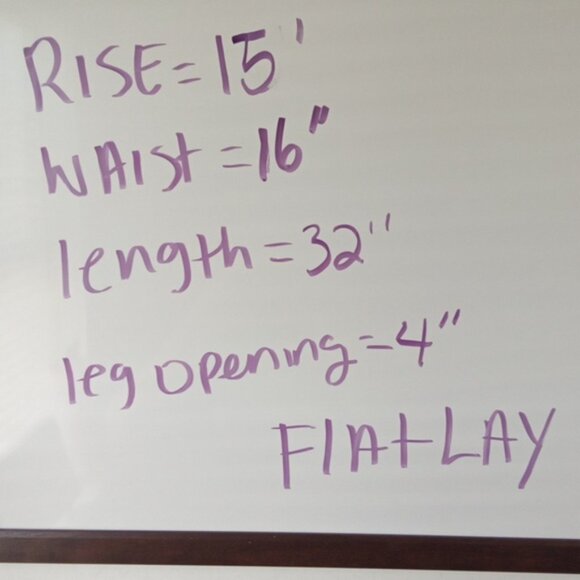 RISE = 15'
WAIST = 16"
length = 32"
leg opening = 4"
FlAt LAY